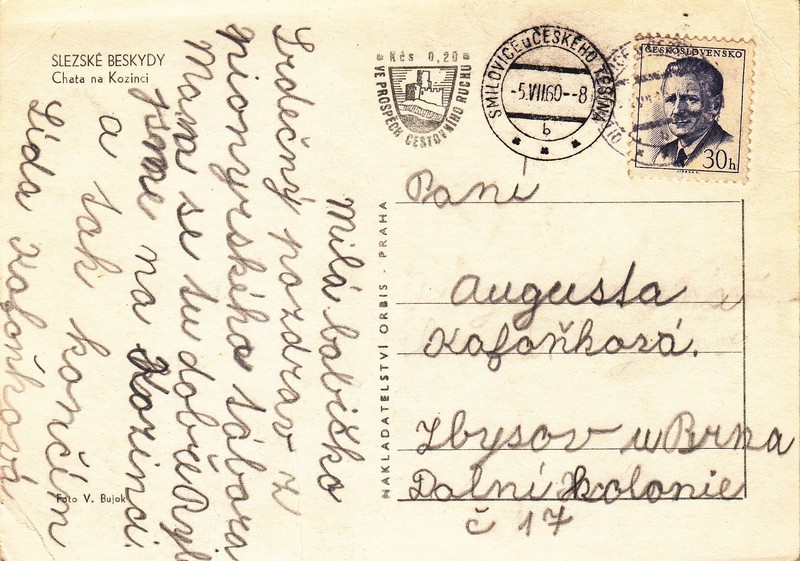 SLEZSKÉ BESKYDY
Chata na Kozinci
Milá babičko
Srdečný pozdrav z
pionyrského tábora
Mám se tu dobře Byli
jsme na Kozinci.
a tak končím
Lída Kafoňková
Foto V. Bujok
NAKLADATELSTVÍ ORBIS - PRAHA
Kčs 0,20
VE PROSPĚCH CESTOVNÍHO RUCHU
SMILOVICE u ČESKÉHO TĚŠÍNA
-5.VII.60--8
b
ČESKOSLOVENSKO
30h
Paní
Augusta
Kafoňková.
Zbysov u Brna
Dolní kolonie
č 17